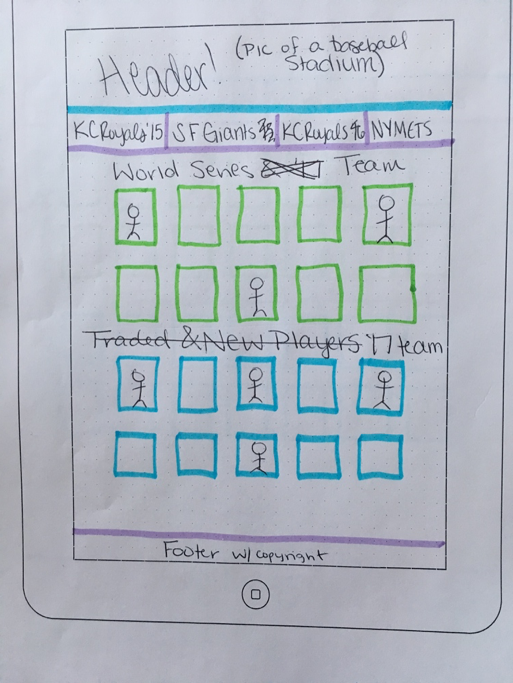 Header! (Pic of a baseball
Stadium)
KCRoyals'15 SFGiants KCRoyals NYMETS
World Series Team
Traded & New Players '17 team
Footer w/ copyright